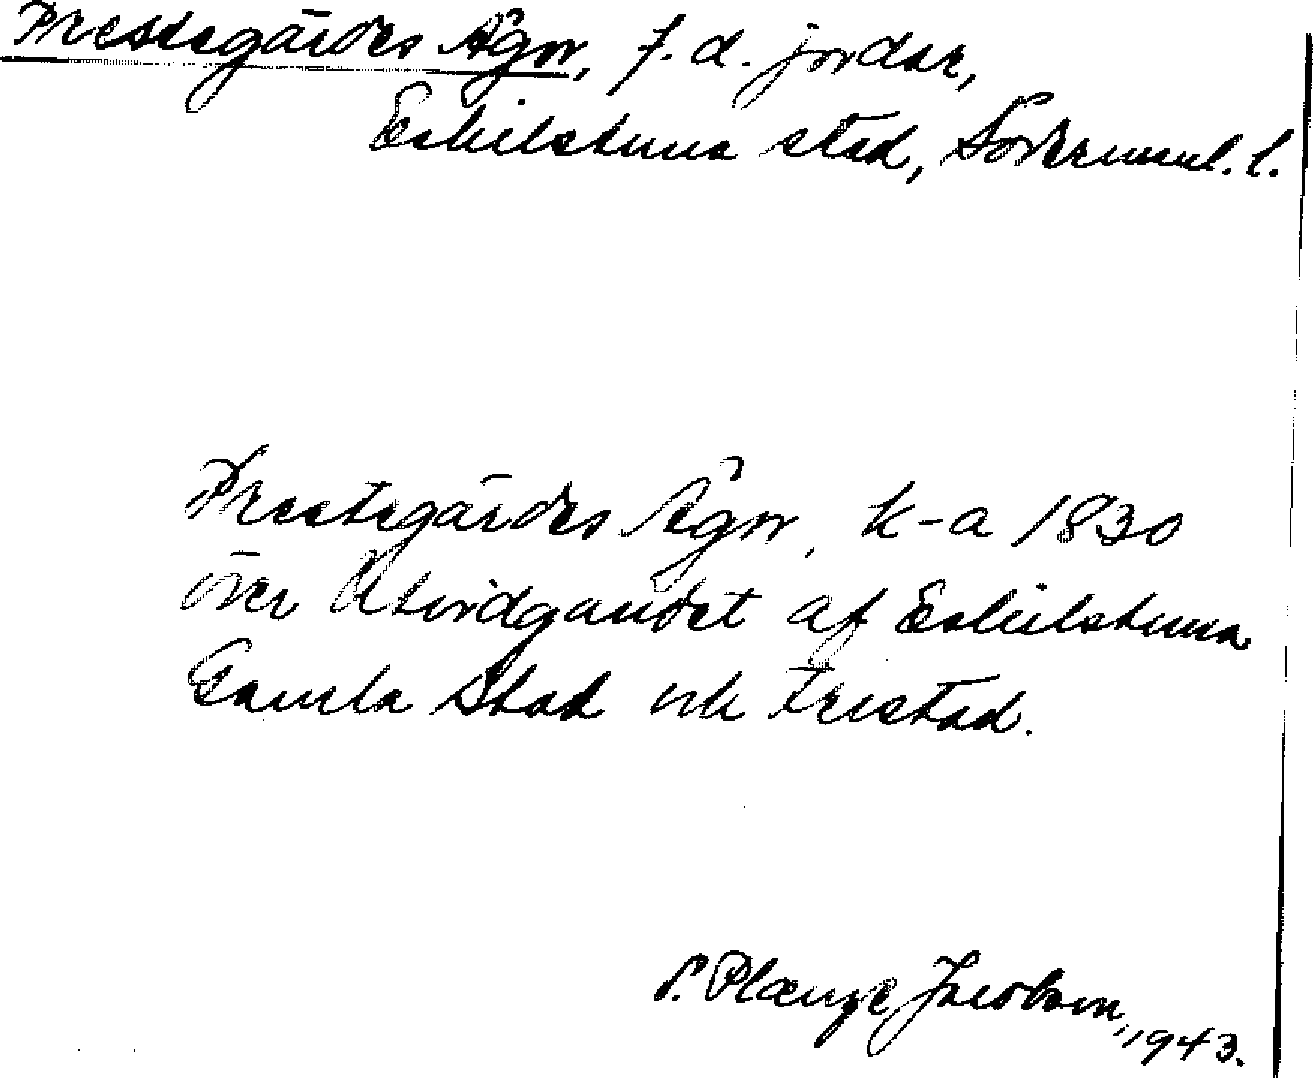 Prestegårdes Ägor, f.d. jordar,
Eskilstuna stad, Södermanl. l.
Prestegårdes Ägor, k-a 1830
över Utvidgandet af Eskilstuna
Gamla Stad och Fristad.
P. Plænge Jacobson, 1943.